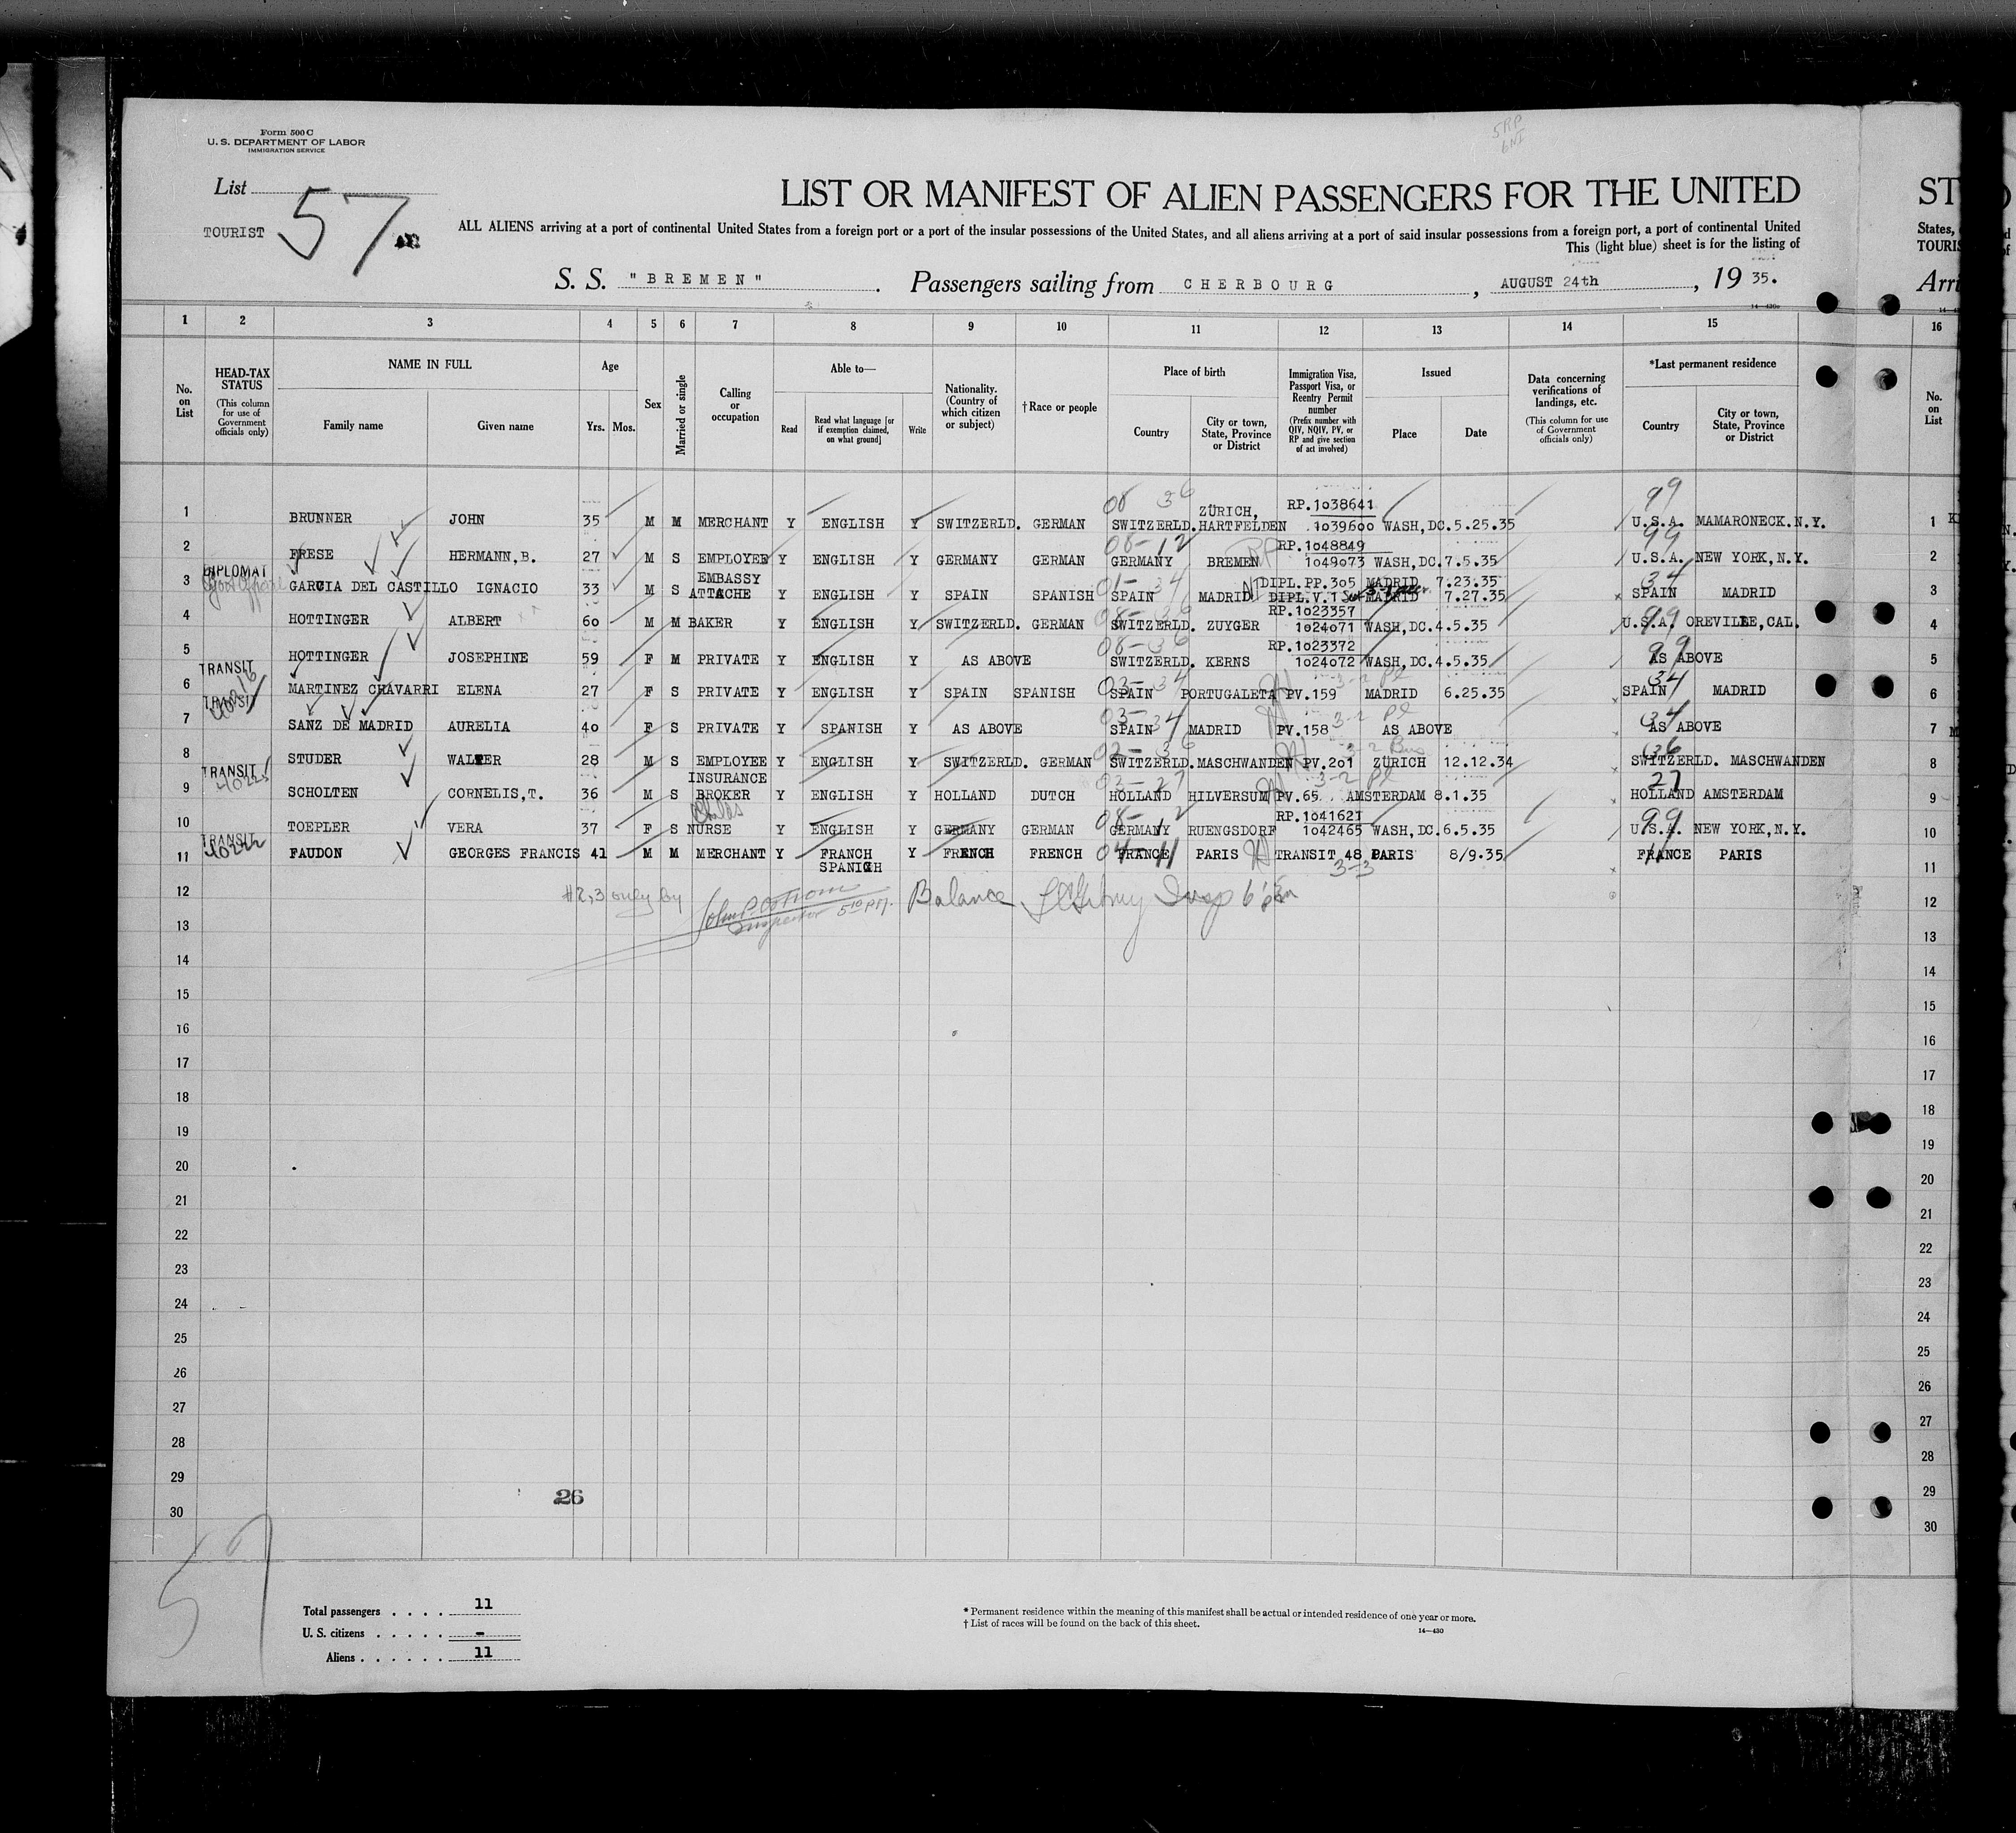 Form 500 C
U. S. DEPARTMENT OF LABOR
IMMIGRATION SERVICE
5 RP
6 NI
List 57
TOURIST
LIST OR MANIFEST OF ALIEN PASSENGERS FOR THE UNITED
ST
ALL ALIENS arriving at a port of continental United States from a foreign port or a port of the insular possessions of the United States, and all aliens arriving at a port of said insular possessions from a foreign port, a port of continental United
States,
This (light blue) sheet is for the listing of
TOURIS
S. S. "BREMEN". Passengers sailing from CHERBOURG, AUGUST 24th, 19 35.
Arri
1 2 3 4 5 6 7 8 9 10 11 12 13 14 15 16
No. on List
HEAD-TAX STATUS (This column for use of Government officials only)
NAME IN FULL
Family name
Given name
Age
Yrs. Mos.
Sex
Married or single
Calling or occupation
Able to—
Read
Read what language [or if exemption claimed, on what ground]
Write
Nationality. (Country of which citizen or subject)
† Race or people
Place of birth
Country
City or town, State, Province or District
Immigration Visa, Passport Visa, or Reentry Permit number (Prefix number with QIV, NQIV, PV, or RP and give section of act involved)
Issued
Place
Date
Data concerning verifications of landings, etc. (This column for use of Government officials only)
*Last permanent residence
Country
City or town, State, Province or District
No. on List
1 BRUNNER JOHN 35 M M MERCHANT Y ENGLISH Y SWITZERLD. GERMAN 08 36 SWITZERLD. ZÜRICH, HARTFELDEN RP.1038641 1039600 WASH,DC.5.25.35 99 U.S.A. MAMARONECK.N.Y. 1
2 FRESE HERMANN,B. 27 M S EMPLOYEE Y ENGLISH Y GERMANY GERMAN 08-12 GERMANY BREMEN RP RP.1048849 1049073 WASH,DC.7.5.35 99 U.S.A. NEW YORK,N.Y. 2
3 DIPLOMAT GARCIA DEL CASTILLO IGNACIO 33 M S EMBASSY ATTACHE Y ENGLISH Y SPAIN SPANISH 01-34 SPAIN MADRID DIPL.PP.305 MADRID 7.23.35 DIPL.V.1 MADRID 7.27.35 34 SPAIN MADRID 3
4 HOTTINGER ALBERT 60 M M BAKER Y ENGLISH Y SWITZERLD. GERMAN 08-36 SWITZERLD. ZUYGER RP.1023357 1024071 WASH,DC.4.5.35 99 U.S.A. OREVILLE,CAL. 4
5 HOTTINGER JOSEPHINE 59 F M PRIVATE Y ENGLISH Y AS ABOVE 08-36 SWITZERLD. KERNS RP.1023372 1024072 WASH,DC.4.5.35 99 AS ABOVE 5
6 TRANSIT MARTINEZ CHAVARRI ELENA 27 F S PRIVATE Y ENGLISH Y SPAIN SPANISH 03-34 SPAIN PORTUGALETA PV.159 3-2 Pl MADRID 6.25.35 34 SPAIN MADRID 6
7 TRANSIT SANZ DE MADRID AURELIA 40 F S PRIVATE Y SPANISH Y AS ABOVE 03-34 SPAIN MADRID PV.158 3-2 Pl AS ABOVE 34 AS ABOVE 7
8 STUDER WALTER 28 M S EMPLOYEE Y ENGLISH Y SWITZERLD. GERMAN 02-36 SWITZERLD. MASCHWANDEN PV.201 3-2 Bus ZÜRICH 12.12.34 36 SWITZERLD. MASCHWANDEN 8
9 TRANSIT SCHOLTEN CORNELIS,T. 36 M S INSURANCE BROKER Y ENGLISH Y HOLLAND DUTCH 03-27 HOLLAND HILVERSUM PV.65 3-2 Pl AMSTERDAM 8.1.35 27 HOLLAND AMSTERDAM 9
10 TOEPLER VERA 37 F S Childs NURSE Y ENGLISH Y GERMANY GERMAN 08-12 GERMANY RUENGSDORF RP.1041621 1042465 WASH,DC.6.5.35 99 U.S.A. NEW YORK,N.Y. 10
11 TRANSIT FAUDON GEORGES FRANCIS 41 M M MERCHANT Y FRANCH SPANISH Y FRENCH FRENCH 04-11 FRANCE PARIS TRANSIT 48 3-3 PARIS 8/9.35 11 FRANCE PARIS 11
12 #2,3 only by Inspector 5 10 PM. Balance Insp 12
13 13
14 14
15 15
16 16
17 17
18 18
19 19
20 20
21 21
22 22
23 23
24 24
25 25
26 26
27 27
28 28
29 29
30 30
26
57
Total passengers . . . . 11
U. S. citizens . . . . . -
Aliens . . . . . . 11
* Permanent residence within the meaning of this manifest shall be actual or intended residence of one year or more.
† List of races will be found on the back of this sheet.
14—430